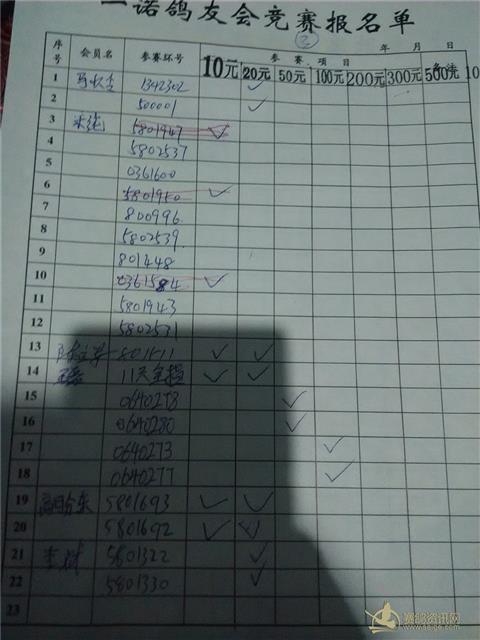 一诺鸽友会竞赛报名单
②
年 月 日
序号 会员名 参赛环号 参赛项目
10元 20元 50元 100元 200元 300元 500元 10
1 1342302 ✓
2 500001 ✓
3 5801947 ✓
4 5802537
5 0361600
6 5801950 ✓
7 800996
8 5802539
9 801448
10 0361584 ✓
11 5801943
12 5802531
13 ✓ ✓
14 ✓ ✓
15 0640278 ✓
16 0640280 ✓
17 0640273 ✓
18 0640277 ✓
19 5801693 ✓ ✓
20 5801692 ✓ ✓
21 李斌 5801322 ✓
22 5801330 ✓
23
赛鸽资讯网
www.saige.com